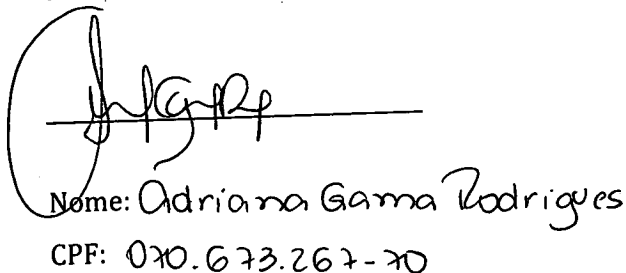 Nome: Adriana Gama Rodrigues
CPF: 070.673.267-70